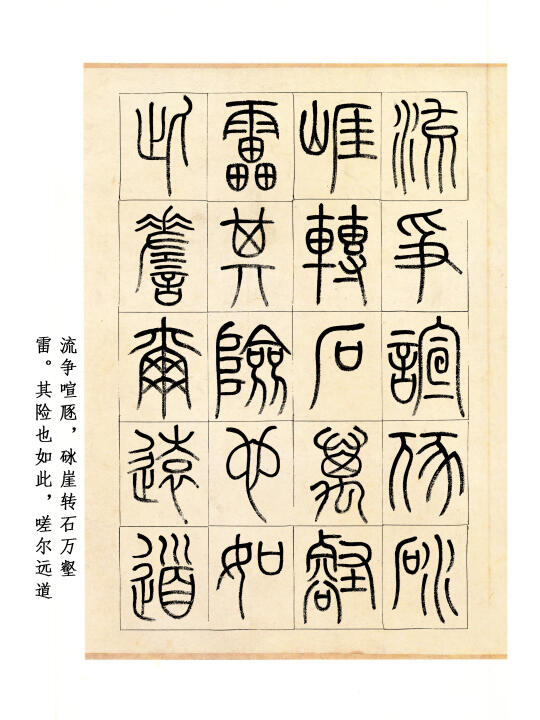 流争諠豗砯
崖轉石萬壑
雷其險也如
此嗟爾遠道
流争喧豗，砯崖转石万壑
雷。其险也如此，嗟尔远道